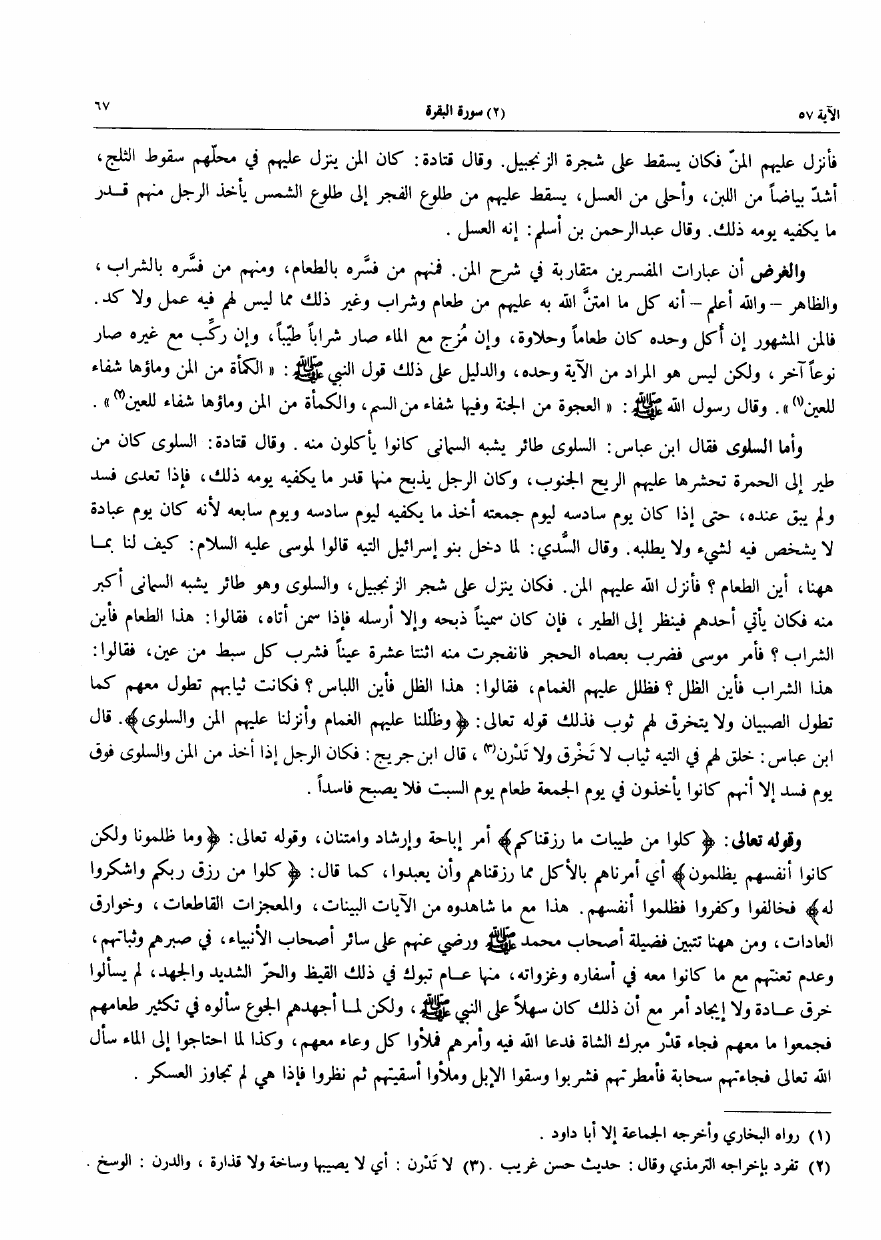 الآية ٥٧ (٢) سورة البقرة ٦٧
فأنزل عليهم المنّ فكان يسقط على شجرة الزنجبيل. وقال قتادة: كان المن ينزل عليهم في محلّهم سقوط الثلج،
أشدّ بياضاً من اللبن، وأحلى من العسل، يسقط عليهم من طلوع الفجر إلى طلوع الشمس يأخذ الرجل منهم قـدر
ما يكفيه يومه ذلك. وقال عبدالرحمن بن أسلم: إنه العسل .
والغرض أن عبارات المفسرين متقاربة في شرح المن. فمنهم من فسَّره بالطعام، ومنهم من فسَّره بالشراب ،
والظاهر – والله أعلم – أنه كل ما امتنَّ الله به عليهم من طعام وشراب وغير ذلك مما ليس لهم فيه عمل ولا كد.
فالمن المشهور إن أُكل وحده كان طعاماً وحلاوة، وإن مُزج مع الماء صار شراباً طيّباً، وإن ركِّب مع غيره صار
نوعاً آخر ، ولكن ليس هو المراد من الآية وحده، والدليل على ذلك قول النبي ﷺ : « الكمأة من المن وماؤها شفاء
للعين(١)». وقال رسول الله ﷺ : « العجوة من الجنة وفيها شفاء من السم، والكمأة من المن وماؤها شفاء للعين(٢)» .
وأما السلوى فقال ابن عباس: السلوى طائر يشبه السمانى كانوا يأكلون منه . وقال قتادة: السلوى كان من
طير إلى الحمرة تحشرها عليهم الريح الجنوب، وكان الرجل يذبح منها قدر ما يكفيه يومه ذلك، فإذا تعدى فسد
ولم يبق عنده، حتى إذا كان يوم سادسه ليوم جمعته أخذ ما يكفيه ليوم سادسه ويوم سابعه لأنه كان يوم عبادة
لا يشخص فيه لشيء ولا يطلبه. وقال السُّدي: لما دخل بنو إسرائيل التيه قالوا لموسى عليه السلام: كيف لنا بمـا
ههنا، أين الطعام؟ فأنزل الله عليهم المن. فكان ينزل على شجر الزنجبيل، والسلوى وهو طائر يشبه السمانى أكبر
منه فكان يأتي أحدهم فينظر إلى الطير ، فإن كان سميناً ذبحه وإلا أرسله فإذا سمن أتاه، فقالوا: هذا الطعام فأين
الشراب؟ فأمر موسى فضرب بعصاه الحجر فانفجرت منه اثنتا عشرة عيناً فشرب كل سبط من عين، فقالوا:
هذا الشراب فأين الظل؟ فظلل عليهم الغمام، فقالوا: هذا الظل فأين اللباس؟ فكانت ثيابهم تطول معهم كما
تطول الصبيان ولا يتخرق لهم ثوب فذلك قوله تعالى: ﴿وظلّلنا عليهم الغمام وأنزلنا عليهم المن والسلوى﴾. قال
ابن عباس: خلق لهم في التيه ثياب لا تَخْرق ولا تَدْرن(٣) ، قال ابن جريج: فكان الرجل إذا أخذ من المن والسلوى فوق
يوم فسد إلا أنهم كانوا يأخذون في يوم الجمعة طعام يوم السبت فلا يصبح فاسداً .
وقوله تعالى: ﴿ كلوا من طيبات ما رزقناكم﴾ أمر إباحة وإرشاد وامتنان، وقوله تعالى: ﴿وما ظلمونا ولكن
كانوا أنفسهم يظلمون﴾ أي أمرناهم بالأكل مما رزقناهم وأن يعبدوا، كما قال: ﴿ كلوا من رزق ربكم واشكروا
له﴾ فخالفوا وكفروا فظلموا أنفسهم. هذا مع ما شاهدوه من الآيات البينات، والمعجزات القاطعات، وخوارق
العادات، ومن ههنا تتبين فضيلة أصحاب محمد ﷺ ورضي عنهم على سائر أصحاب الأنبياء، في صبرهم وثباتهم،
وعدم تعنتهم مع ما كانوا معه في أسفاره وغزواته، منها عـام تبوك في ذلك القيظ والحرّ الشديد والجهد، لم يسألوا
خرق عـادة ولا إيجاد أمر مع أن ذلك كان سهلاً على النبي ﷺ ، ولكن لمـا أجهدهم الجوع سألوه في تكثير طعامهم
فجمعوا ما معهم فجاء قدْر مبرك الشاة فدعا الله فيه وأمرهم فملأوا كل وعاء معهم، وكذا لما احتاجوا إلى الماء سأل
الله تعالى فجاءتهم سحابة فأمطرتهم فشربوا وسقوا الإبل وملأوا أسقيتهم ثم نظروا فإذا هي لم تجاوز العسكر .
(١) رواه البخاري وأخرجه الجماعة إلا أبا داود .
(٢) تفرد بإخراجه الترمذي وقال : حديث حسن غريب .(٣) لا تَدْرن : أي لا يصيبها وساخة ولا قذارة ، والدرن : الوسخ .